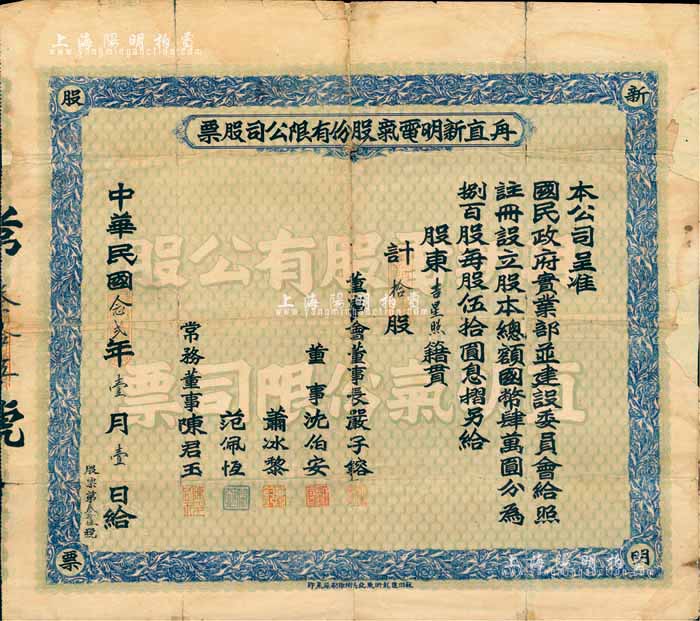 新
股
明
票
甪直新明電氣股份有限公司股票
本公司呈准
國民政府實業部並建設委員會給照
註冊設立股本總額國幣肆萬圓分為
捌百股每股伍拾圓息摺另給
股東李星照籍貫
計拾股
董事會董事長嚴子鎔
董事沈伯安
蕭冰黎
范佩恆
常務董事陳君玉
中華民國念弍年壹月壹日給
股票第 號
號
上海陽明拍賣
www.yangmingauction.com
上海陽明拍賣
www.yangmingauction.com
上海陽明拍賣
www.yangmingauction.com